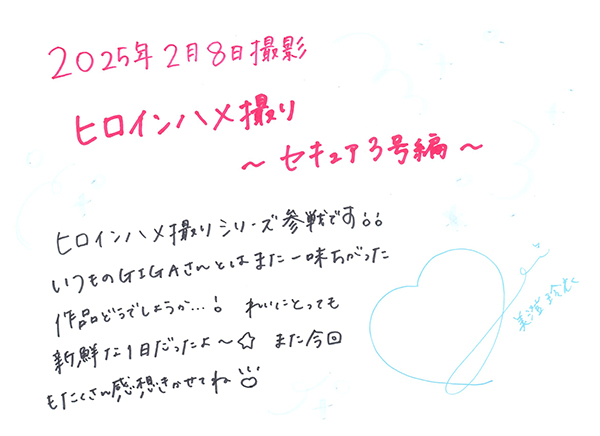 2025年2月8日撮影
ヒロインハメ撮り
～セキュア3号編～
ヒロインハメ撮りシリーズ参戦です!!
いつものGIGAさんとはまた一味ちがった
作品どうでしょうか…! れいにとっても
新鮮な1日だったよ～☆ また今回
もたくさん感想きかせてね
美澄玲衣